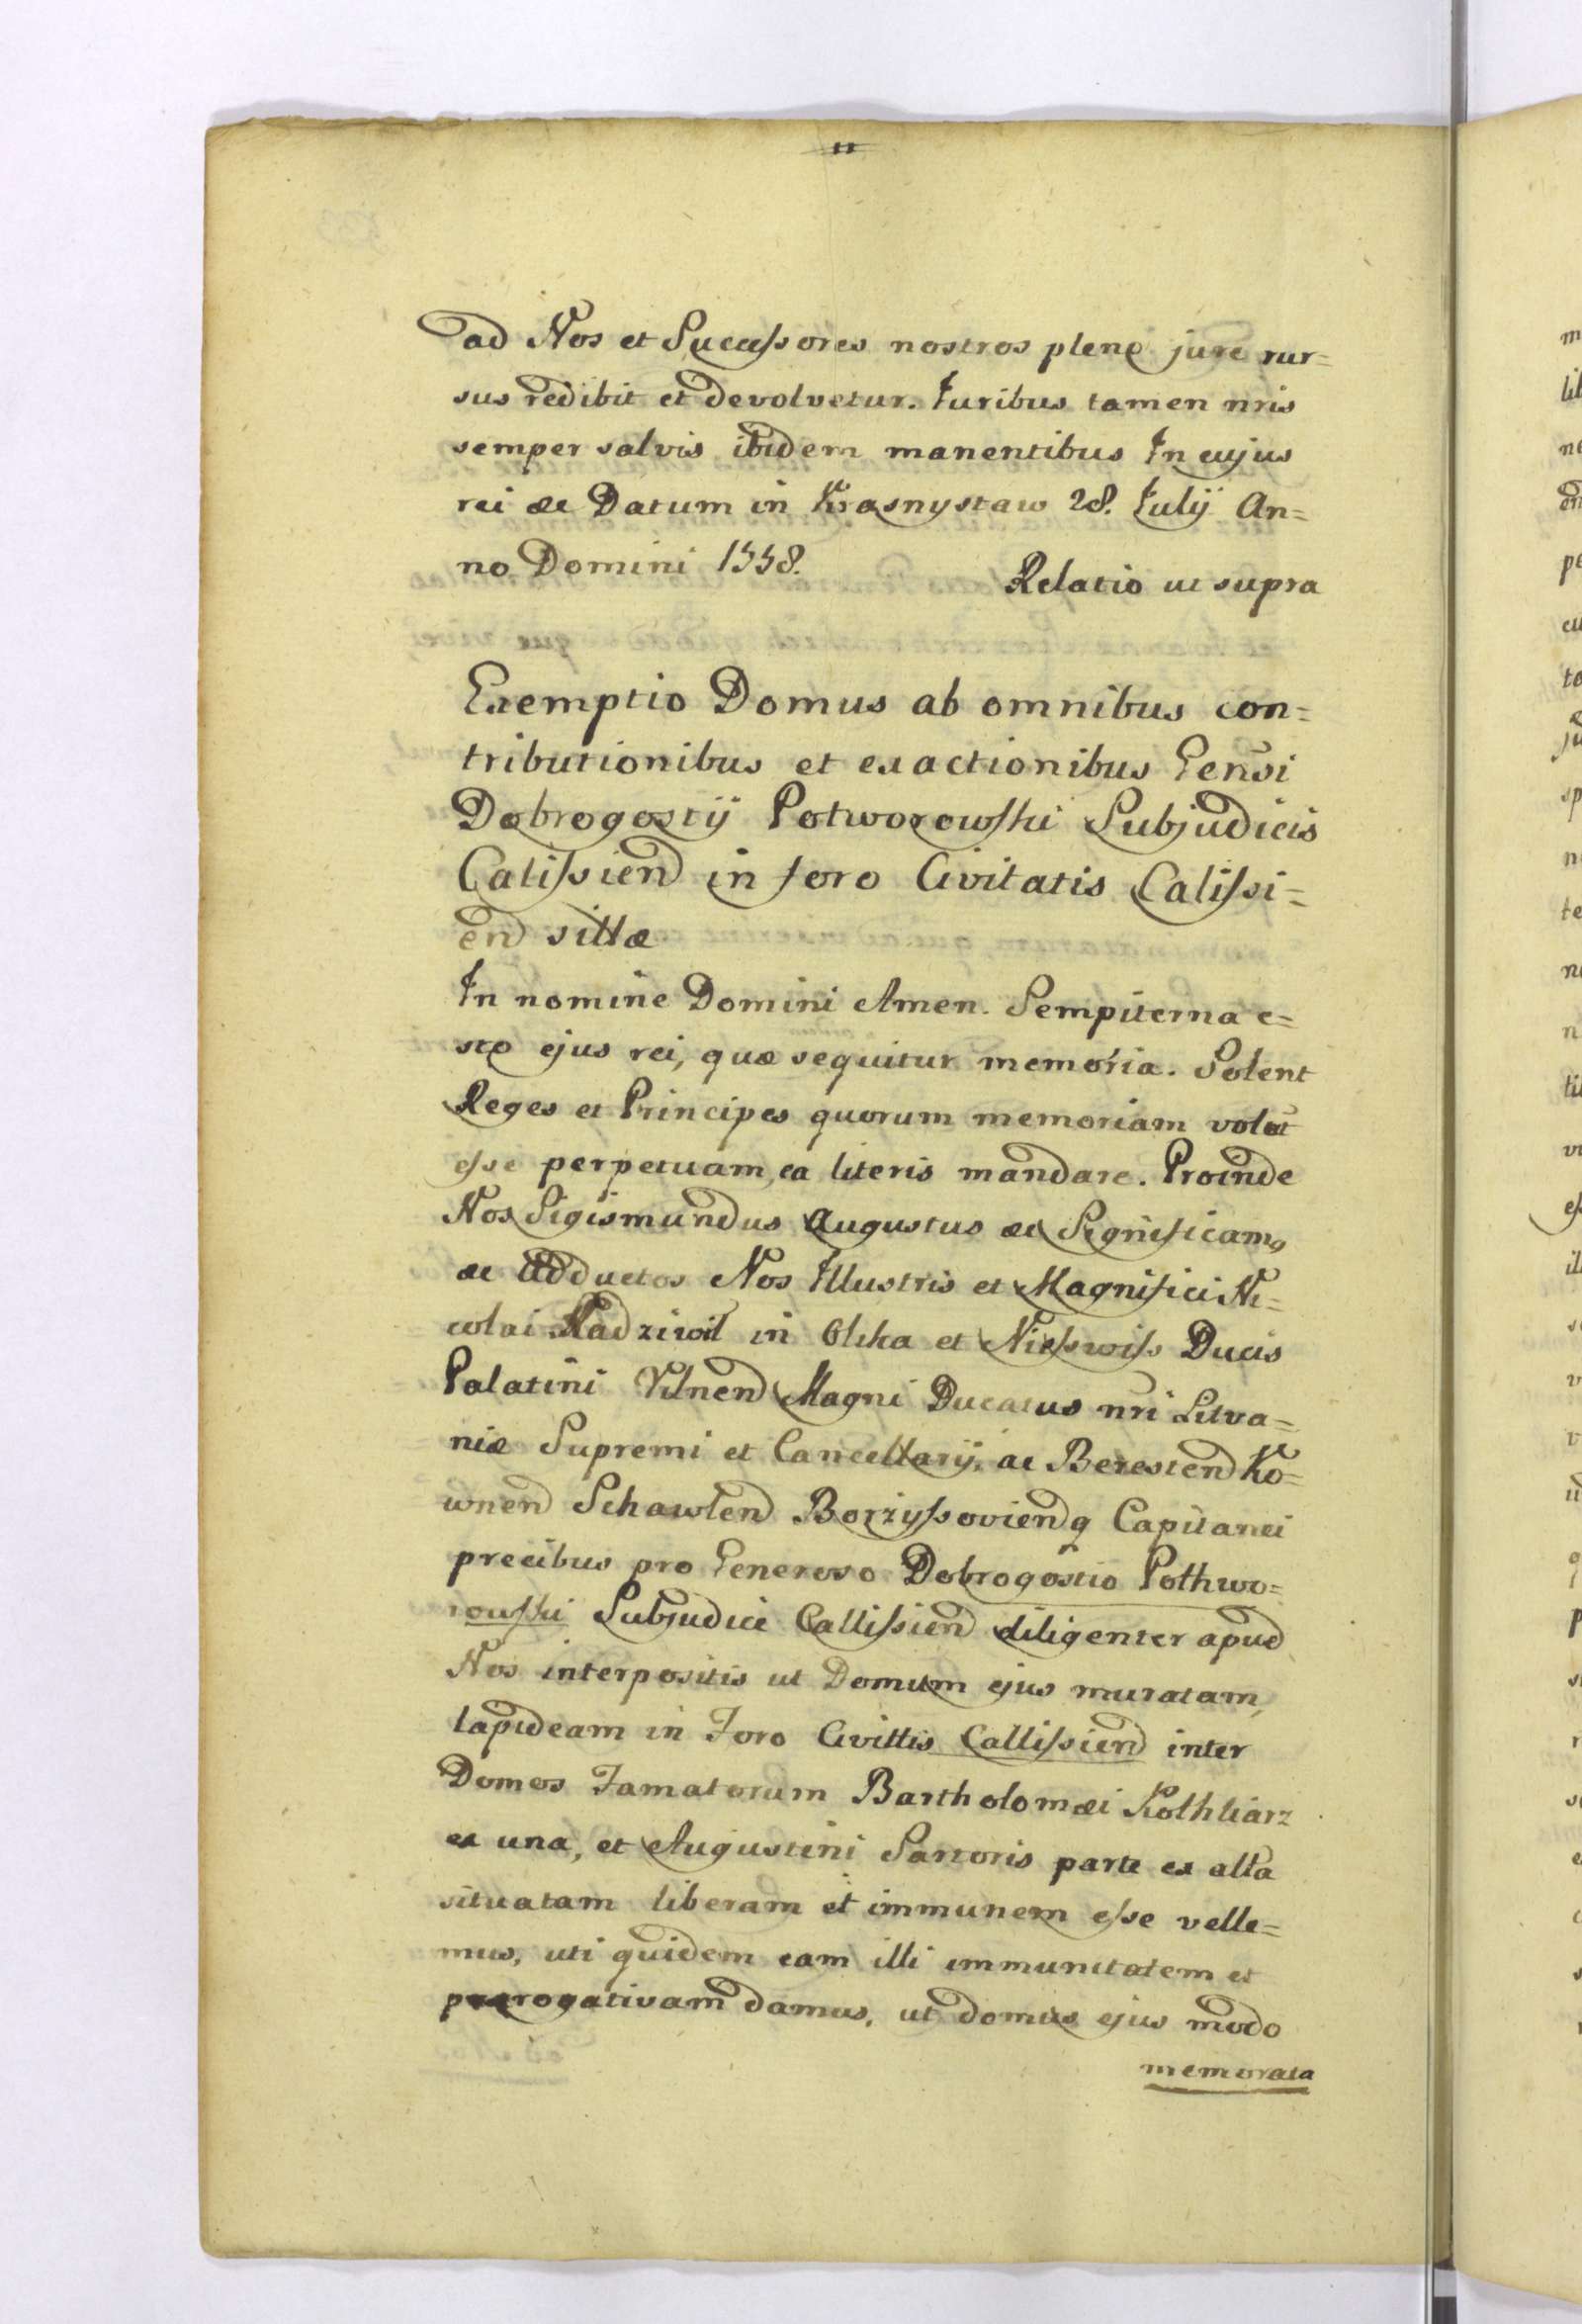 ad Nos et Successores nostros plene jure rur=
sus redibit et devolvetur. Juribus tamen nris
semper salvis ibidem manentibus In cujus
rei &c Datum in Krasnystaw 28. Julij An=
no Domini 1558.
Relatio ut supra
Exemptio Domus ab omnibus con=
tributionibus et exactionibus Gensi
Dobrogostij Potworowski Subjudicis
Calissien in foro Civitatis Calissi=
en sittæ
In nomine Domini Amen. Sempiterna e=
sto ejus rei, quæ sequitur memoria. Solent
Reges et Principes quorum memoriam volut
esse perpetuam, ea literis mandare. Proinde
Nos Sigismundus Augustus &c Significam9
&c Adductos Nos Illustris et Magnifici Ni=
colai Radziwil in Olika et Niesswiss Ducis
Palatini Vilnen Magni Ducatus nri Litva=
niæ Supremi et Cancellarij, ac Beresten Ko=
wnen Schawlen Borzyssovienq Capitanei
precibus pro Generoso Dobrogostio Pothwo=
rowski Subjudice Callissien diligenter apud
Nos interpositis ut Domum ejus muratam,
lapideam in Foro Civittis Callissien inter
Domos Famatorum Bartholomæi Kothliarz
ex una, et Augustini Sartoris parte ex alta
situatam liberam et immunem esse velle=
mus, uti quidem eam illi immunitatem et
prærogativam damus, ut domus ejus modo
memorata